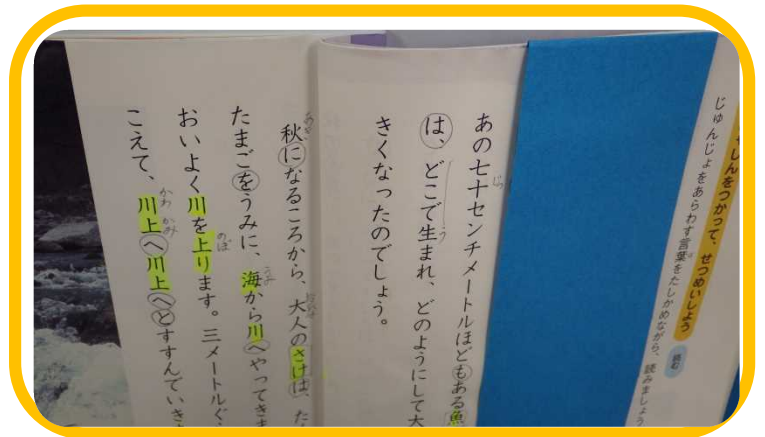 しんをつかって、せつめいしよう
読む
じゅんじょをあらわす言葉をたしかめながら、読みましょう
あの七十センチメートルほどもある魚
は、どこで生まれ、どのようにして大
きくなったのでしょう。
秋になるころから、大人のさけは、た
たまごをうみに、海から川へやってきま
おいよく川を上ります。三メートルぐ
こえて、川上へ川上へとすすんでいき